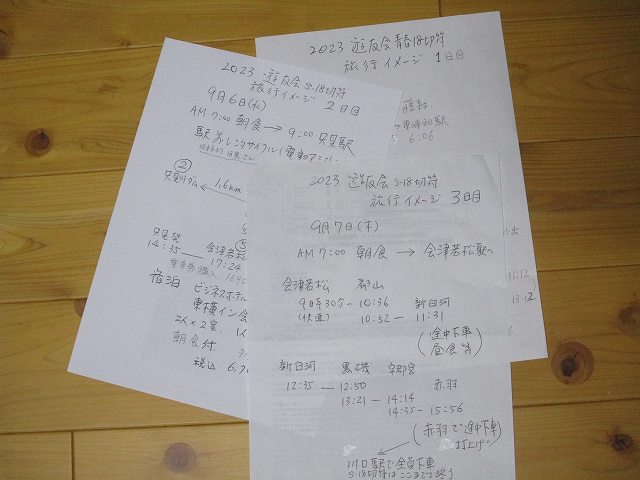 2023 遊友会 青春18切符
旅行イメージ 1日目
6:06
11:12)
13:12
2023 遊友会 S-18切符
旅行イメージ 2日目
9月6日(水)
AM 7:00 朝食 → 9:00 只見駅
駅 レンタサイクル(電動アシ
②
只見ダム ← 1.6km
只見発 会津若松
14:35 — 17:24
⑤
宿泊 ビジネスホテル
東横イン会
2人×2室
朝食付
税込 6,7
2023 遊友会 S-18切符
旅行イメージ 3日目
9月7日(木)
AM 7:00 朝食 → 会津若松駅へ
会津若松 郡山
9時30分 — 10:36 新白河
(快速) 10:52 — 11:31
(途中下車
昼食等)
新白河 黒磯 宇都宮
12:35 — 12:50 赤羽
13:21 — 14:14
14:35 — 15:56
(赤羽で途中下車
打上げ)
川口駅で全員下車
S-18切符はここまでで終り